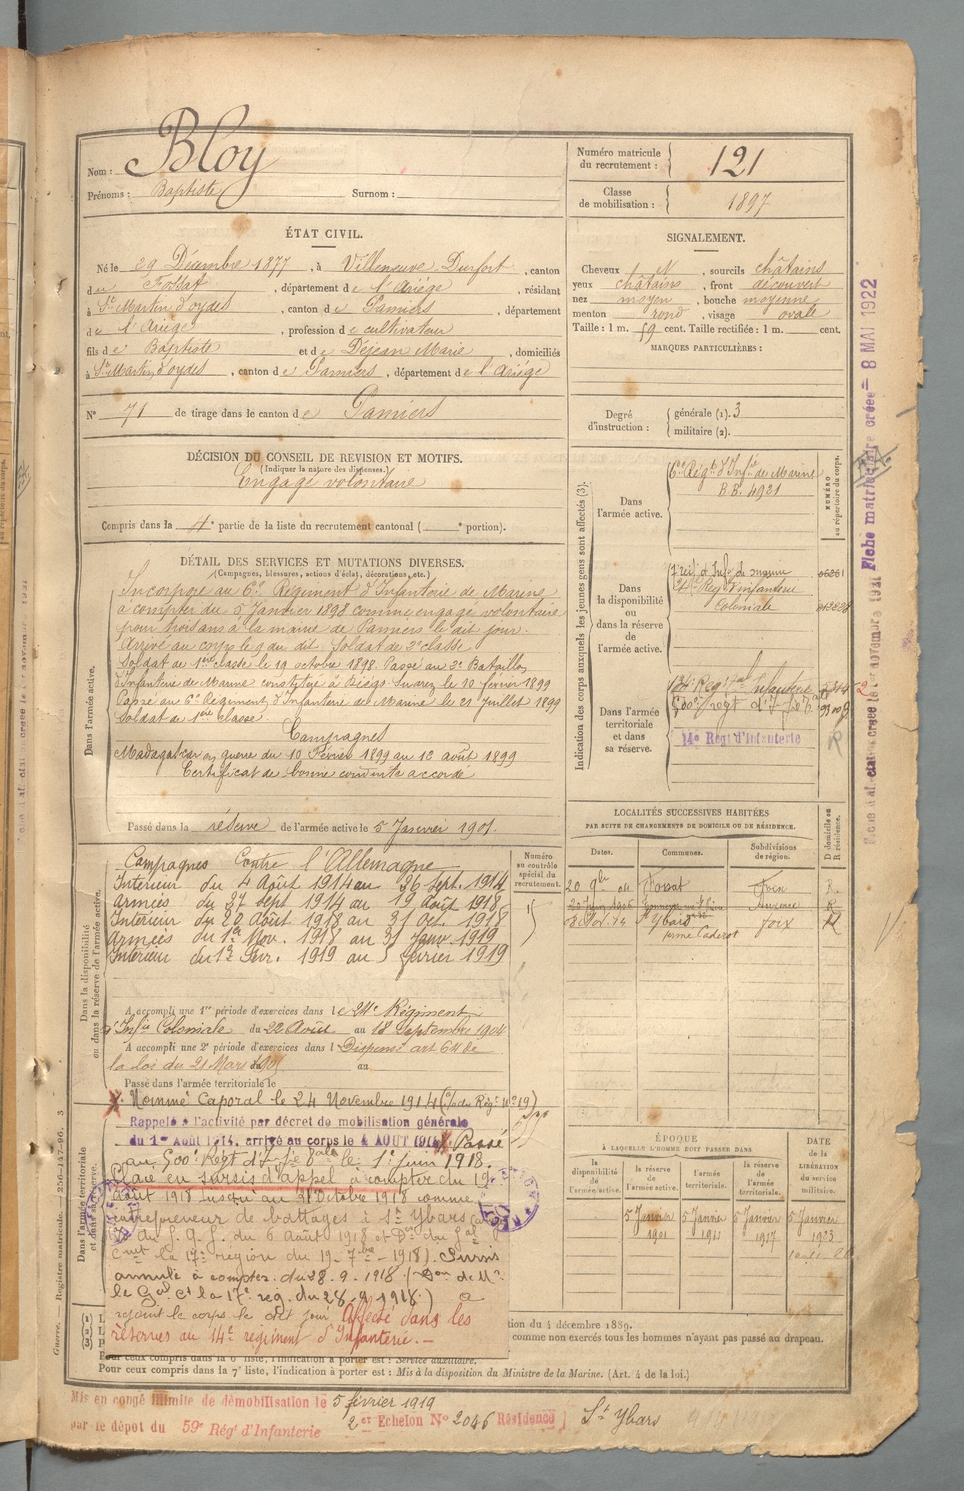 Nom : Bloy
Prénoms : Baptiste Surnom :
Numéro matricule du recrutement : 121
Classe de mobilisation : 1897
ÉTAT CIVIL.
Né le 29 Décembre 1877, à Villeneuve Durfort, canton
de Fossat, département de l'Ariège, résidant
à St Martin d'oydes, canton de Pamiers, département
de l'Ariège, profession de cultivateur
fils de Baptiste et de Déjean Marie, domiciliés
à St Martin d'oydes, canton de Pamiers, département de l'Ariège
N° 71 de tirage dans le canton de Pamiers
SIGNALEMENT.
Cheveux N, sourcils châtains
yeux châtains, front découvert
nez moyen, bouche moyenne
menton rond, visage ovale
Taille : 1 m. 59 cent. Taille rectifiée : 1 m. cent.
MARQUES PARTICULIÈRES :
Degré d'instruction : générale (1). 3
militaire (2).
DÉCISION DU CONSEIL DE REVISION ET MOTIFS.
(Indiquer la nature des dispenses.)
Engagé volontaire
Compris dans la 4e partie de la liste du recrutement cantonal ( e portion).
DÉTAIL DES SERVICES ET MUTATIONS DIVERSES.
(Campagnes, blessures, actions d'éclat, décorations, etc.)
Dans l'armée active.
Incorporé au 6e Régiment d'Infanterie de Marine
à compter du 5 Janvier 1898 comme engagé volontaire
pour trois ans à la mairie de Pamiers le dit jour.
Arrivé au corps le 9 du dit. Soldat de 2e classe
Soldat de 1ère classe le 19 octobre 1898. Passé au 3e Bataillon
d'Infanterie de Marine constitué à Diégo-Suarez le 10 février 1899
Passé au 6e Régiment d'Infanterie de Marine le 21 Juillet 1899
Soldat de 1ère classe.
Campagnes
Madagascar en guerre du 10 Février 1899 au 12 août 1899
Certificat de bonne conduite accordé
Passé dans la réserve de l'armée active le 5 Janvier 1901.
Indication des corps auxquels les jeunes gens sont affectés (3).
NUMÉRO au répertoire du corps.
Dans l'armée active.
6e Régt d'Infie de Marine
B.B. 4921
Dans la disponibilité ou dans la réserve de l'armée active.
7 Régt d'Infie de marine
24e Régt Infanterie
Coloniale
Dans l'armée territoriale et dans sa réserve.
500e regt d'I
14e Régt d'Infanterie
R
Dans la disponibilité ou dans la réserve de l'armée active.
Numéro au contrôle spécial du recrutement.
Campagnes Contre l'Allemagne
Intérieur du 4 Août 1914 au 26 Sept. 1914
Armées du 27 sept 1914 au 19 août 1918
Intérieur du 20 Août 1918 au 31 Oct. 1918
Armées du 1er Nov. 1918 au 31 janv. 1919
Intérieur du 1er Fev. 1919 au 5 février 1919
A accompli une 1re période d'exercices dans le 24e Régiment
d'Infie Coloniale du 22 Août au 18 Septembre 1904
A accompli une 2e période d'exercices dans l Dispensé art 64 de
la loi du 21 Mars 1905 au
Passé dans l'armée territoriale le
LOCALITÉS SUCCESSIVES HABITÉES
PAR SUITE DE CHANGEMENTS DE DOMICILE OU DE RÉSIDENCE.
Dates. Communes. Subdivisions de région. D domicile ou R résidence.
20 9bre 01 Fossat Foix R.
Auxerre R
St Ybars Foix R
Dans l'armée territoriale et dans sa réserve.
Nommé Caporal le 24 Novembre 1914
Rappelé à l'activité par décret de mobilisation générale
du 1er Août 1914, arrivé au corps le 4 AOUT 1914. Passé
au 500e Regt d'I. le 1er juin 1918.
Placé en sursis d'appel à compter du 19
août 1918 jusqu'au 21 Octobre 1918 comme
entrepreneur de battages à St Ybars
du 6 août 1918 et Don du Gal
Cmt la 17e région du 19-7bre-1918). Sursis
annulé à compter du 28.9.1918 (Don de Mr
le Gal Ct la 17e reg. du 28.9.1918.) a
rejoint le corps le dit jour. Affecté dans les
réserves au 14e régiment d'Infanterie.
ÉPOQUE
À LAQUELLE L'HOMME DOIT PASSER DANS
la disponibilité de l'armée active. la réserve de l'armée active. l'armée territoriale. la réserve de l'armée territoriale.
DATE de la LIBÉRATION du service militaire.
5 Janvier 1901 5 Janvier 1911 5 Janvier 1917 5 Janvier 1923
tion du 4 décembre 1889.
comme non exercés tous les hommes n'ayant pas passé au drapeau.
Pour ceux compris dans la 6e liste, l'indication à porter est : Service auxiliaire.
Pour ceux compris dans la 7e liste, l'indication à porter est : Mis à la disposition du Ministre de la Marine. (Art. 4 de la loi.)
Mis en congé illimité de démobilisation le 5 février 1919
2er Echelon N° 2046 Résidence St Ybars
par le dépôt du 59e Rég' d'Infanterie
Guerre. — Registre matricule. 256-147-96. 3
Fiche matriculaire créée = 8 MAI 1922